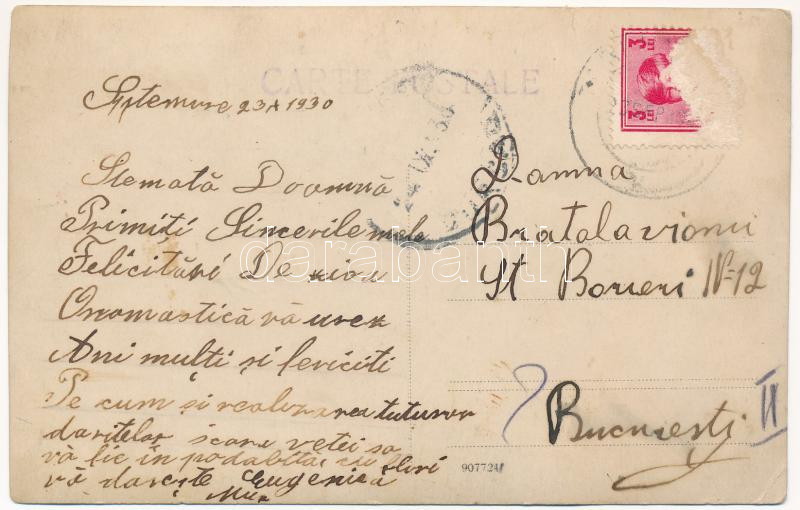 CARTE POSTALE
Septemvre 23 1930
Stemată Doamnă
Primiți Sincerile mele
Felicitări De ziou
Onomastică vă urez
Ani mulți și fericiti
Pe cum si realizarea tuturor
daritelor scane vetei sa
vă fie in podabită, cu flori
vă darește Eugenica
Damna
Bratalavionu
St Borieri N-12
București
II
3 LEI
3 LEI
907724
darabanth